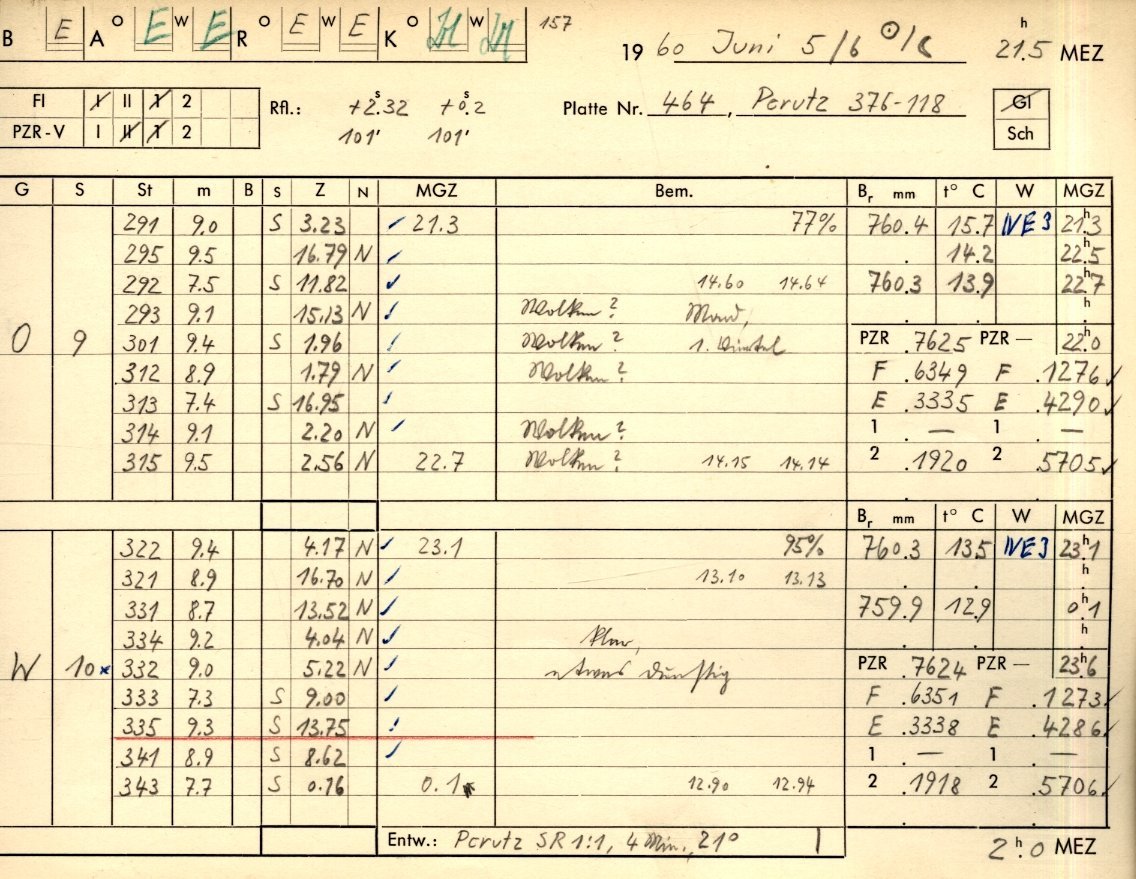 B E A O E W E R O E W E K O W 157
19 60 Juni 5/6 ☉/☾ 21.5 h MEZ
FI I II 1 2 Rfl.: +2.32 s +0.2 s Platte Nr. 464, Perutz 376-118 Gl
PZR-V I II 1 2 101' 101' Sch
G S St m B S Z N MGZ Bem. Br mm t° C W MGZ
291 9.0 S 3.23 ✓ 21.3 77% 760.4 15.7 NE 3 21.3 h
295 9.5 16.79 N ✓ 14.2 22.5 h
292 7.5 S 11.82 ✓ 14.60 14.64 760.3 13.9 22.7 h
293 9.1 15.13 N ✓ Wolken? Mond, h
O 9 301 9.4 S 1.96 ✓ Wolken? 1. Viertel PZR .7625 PZR — 22.0 h
312 8.9 1.79 N ✓ Wolken? F .6349 F .1276 ✓
313 7.4 S 16.95 ✓ E .3335 E .4290 ✓
314 9.1 2.20 N ✓ Wolken? 1 . — 1 . —
315 9.5 2.56 N 22.7 Wolken? 14.15 14.14 2 .1920 2 .5705 ✓
Br mm t° C W MGZ
322 9.4 4.17 N ✓ 23.1 95% 760.3 13.5 NE 3 23.1 h
321 8.9 16.70 N ✓ 13.10 13.13 h
331 8.7 13.52 N ✓ 759.9 12.9 0.1 h
334 9.2 4.04 N ✓ klar, h
W 10 × 332 9.0 5.22 N ✓ etwas dunstig PZR .7624 PZR — 23.6 h
333 7.3 S 9.00 ✓ F .6351 F .1273 ✓
335 9.3 S 13.75 ✓ E .3338 E .4286 ✓
341 8.9 S 8.62 ✓ 1 . — 1 . —
343 7.7 S 0.76 0.1 12.90 12.94 2 .1918 2 .5706 ✓
Entw.: Perutz SR 1:1, 4 Min., 21° 2.0 h MEZ